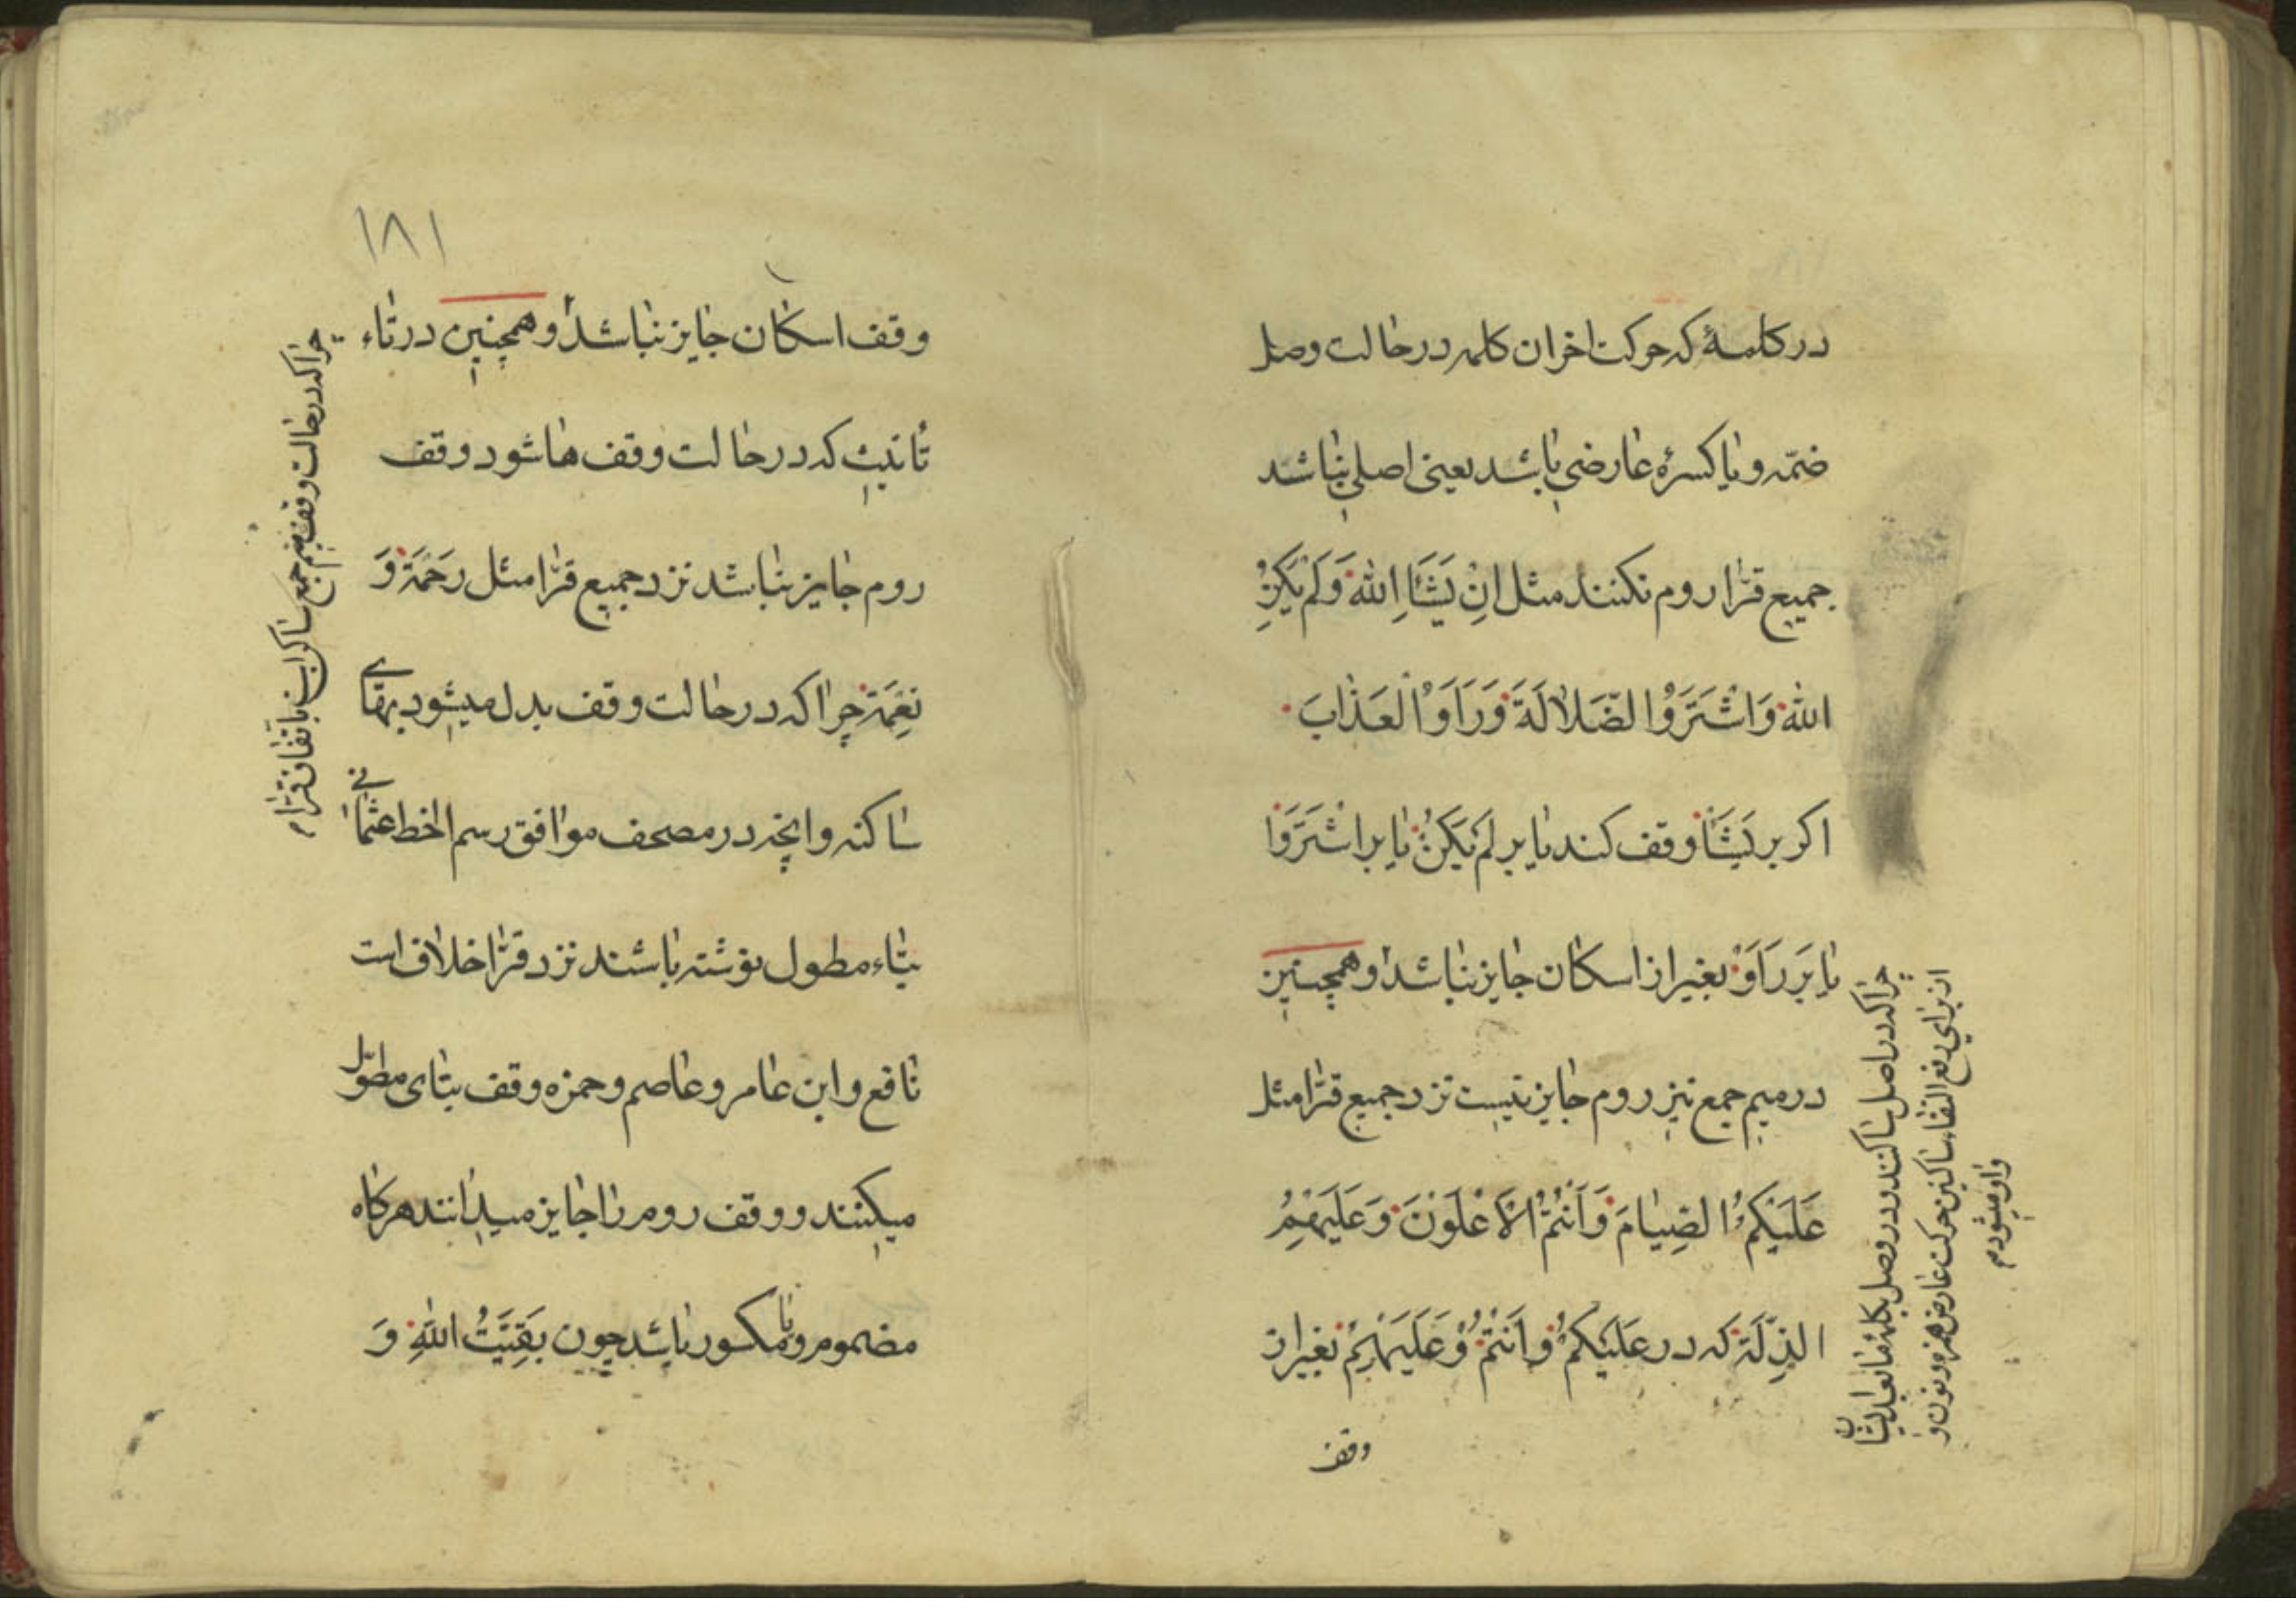 در کلمهٔ که حرکت اخر ان کلمه در حالت وصل
ضمّه و یا کسرهٔ عارضی باشد یعنی اصلی نباشد
جمیع قرّا روم نکنند مثل اِنْ یَشَاِ اللّٰه وَلَمْ یَکُنِ
اللّٰه وَاشْتَرَوُا الضَّلَالَةَ وَرَاَوُا الْعَذَابَ
اکر بر یَشَاْ وقف کند یا بر لَمْ یَکُنْ یا بر اشْتَرَوْا
یا بَر رَاَوْ بغیر از اسکان جایز نباشد و همچنین
در میم جمع نیز روم جایز نیست نزد جمیع قرّا مثل
عَلَیْکُمُ الصِّیَامَ وَاَنْتُمُ الْاَعْلَوْنَ وَعَلَیْهِمُ
الذِّلَّةَ که در عَلَیْکُمْ وَاَنْتُمْ وَعَلَیْهِمْ بغیر از
وقف
چرا که در اصل ساکنند و در وصل بکلمهٔ ما بعد ایشان
از برای رفع التقاء ساکنین حرکت عارض همزه و نون و
واو میشود م
١٨١
وقف اسکان جایز نباشد و همچنین در تاء
تأنیث که در حالت وقف ها شود وقف
روم جایز نباشد نزد جمیع قرّا مثل رَحْمَة وَ
نِعْمَة چرا که در حالت وقف بدل میشود بهای
ساکنه و انچه در مصحف موافق رسم الخط عثمانی
بتاء مطول نوشته باشند نزد قرّا خلاف است
نافع و ابن عامر و عاصم و حمزه وقف بتای مطوّل
میکنند و وقف روم را جایز میدانند هرکاه
مضموم و یا مکسور باشد چون بَقِیَّتُ اللّٰهِ وَ
چرا که در حالت وقف میم جمع ساکن است باتفاق قرّا م